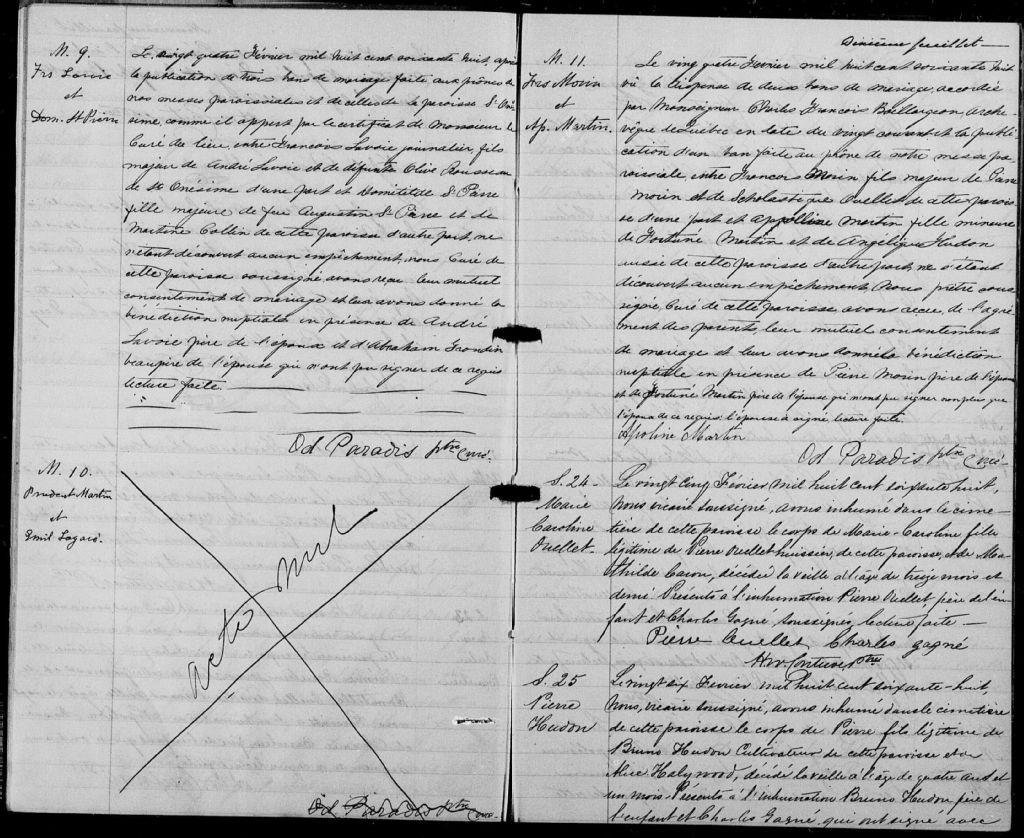 M. 9.
Frs Savoie
et
Dom. St Pierre
Le vingt quatre Février mil huit cent soixante huit, après
la publication de trois bans de mariage faite aux prônes de
nos messes paroissiales et de celles de la paroisse St Oné-
sime, comme il appert par le certificat de Monsieur le
Curé du lieu, entre François Savoie journalier, fils
majeur de André Savoie et de défunte Olive Rousseau
de St Onésime d'une part et Domitilde St Pierre
fille majeure de feu Augustin St Pierre et de
Martine Collin de cette paroisse d'autre part, ne
s'étant découvert aucun empêchement, nous Curé de
cette paroisse soussigné avons reçu leur mutuel
consentement de mariage et leur avons donné la
bénédiction nuptiale en présence de André
Savoie père de l'époux et d'Abraham Grondin
beaupère de l'épouse qui n'ont pu signer de ce requis
lecture faite.
Od Paradis ptre Curé.
M. 10.
Prudent Martin
et
Emil Lagacé.
acte nul
Od Paradis ptre Curé
Dixième feuillet
M. 11.
Frs Morin
et
Ap. Martin.
Le vingt quatre Février mil huit cent soixante huit
vû la dispense de deux bans de mariage, accordée
par Monseigneur Charles François Baillargeon, arche
vêque de Québec en date du vingt courant et la publi
cation d'un ban faite au prône de notre messe pa
roissiale, entre François Morin fils majeur de Pierre
Morin et de Scholastique Ouellet de cette parois
se d'une part et Appolline Martin fille mineure
de Fortuné Martin et de Angélique Hudon
aussi de cette paroisse d'autre part, ne s'étant
découvert aucun empêchement, Nous prêtre sous
signé, Curé de cette paroisse, avons reçu, de l'agré
ment des parents leur mutuel consentement
de mariage et leur avons donné la bénédiction
nuptiale en présence de Pierre Morin père de l'époux
et de Fortuné Martin père de l'épouse qui n'ont pu signer non plus que
l'époux de ce requis: l'épouse a signé, lecture faite.
Apoline Martin
Od Paradis ptre Curé.
S. 24
Marie
Caroline
Ouellet
Le vingt cinq Février mil huit cent soixante huit,
Nous vicaire soussigné, avons inhumé dans le cime-
tière de cette paroisse le corps de Marie-Caroline fille
légitime de Pierre Ouellet huissier, de cette paroisse, et de Ma-
thilde Caron, décédée la veille à l'âge de treize mois et
demi. Présents à l'inhumation Pierre Ouellet père de l'en-
fant et Charles Gagné, soussignés, lecture faite
Pierre Ouellet, Charles gagné
S. 25
Pierre
Hudon
Le vingt six Février mil huit cent soixante-huit,
Nous, vicaire soussigné, avons inhumé dans le cimetière
de cette paroisse le corps de Pierre fils légitime de
Bruno Hudon Cultivateur de cette paroisse et de
Alice Halywood, décédé la veille à l'âge de quatre ans et
un mois. Présents à l'inhumation Bruno Hudon père de
l'enfant et Charles Gagné, qui ont signé avec